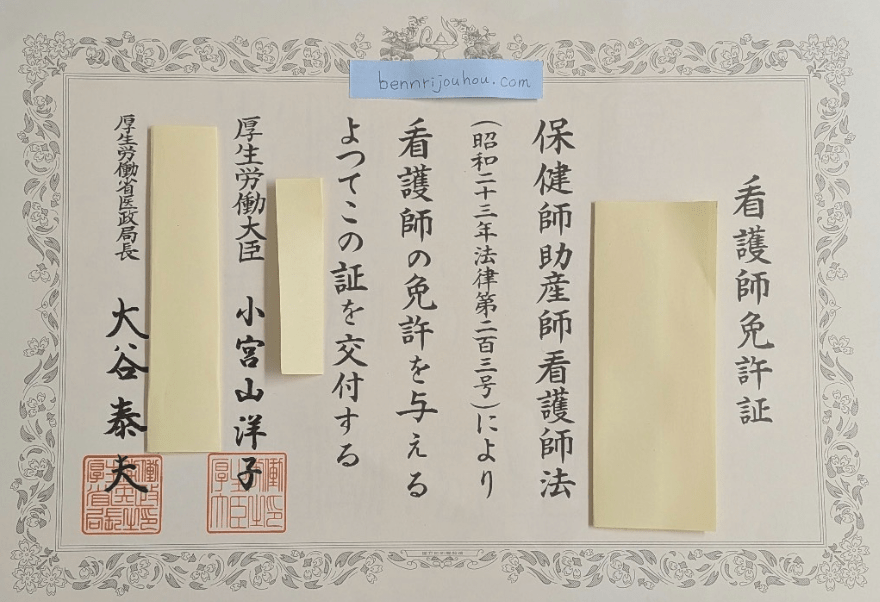 bennrijouhou.com
看護師免許証
保健師助産師看護師法
(昭和二十三年法律第二百三号)により
看護師の免許を与える
よつてこの証を交付する
厚生労働大臣 小宮山洋子
厚生労働省医政局長 大谷泰夫